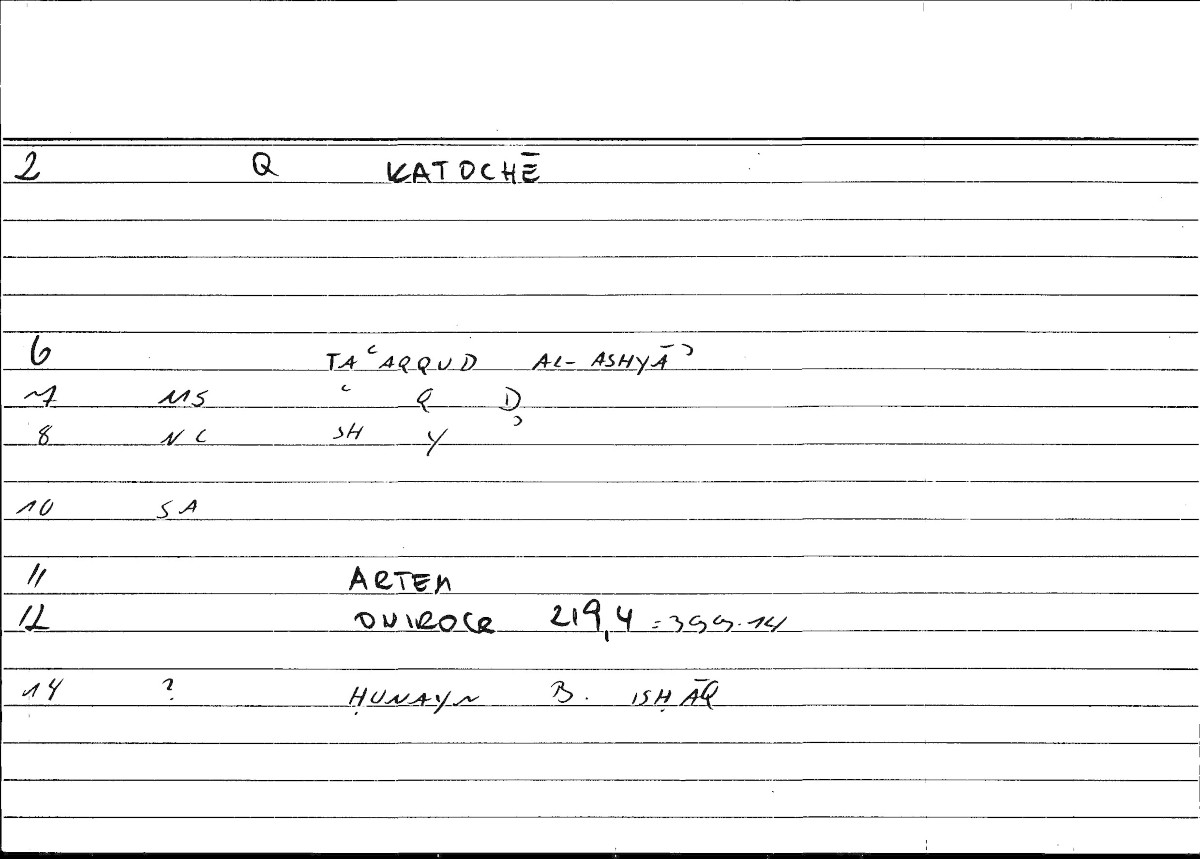 2 Q KATOCHĒ
6 TAʿAQQUD AL-ASHYĀʾ
7 MS ʿ Q D
8 NC SH Y ʾ
10 SA
11 ARTEM
12 ONIROCR 219,4 = 399.14
14 ? ḤUNAYN B. ISḤĀQ